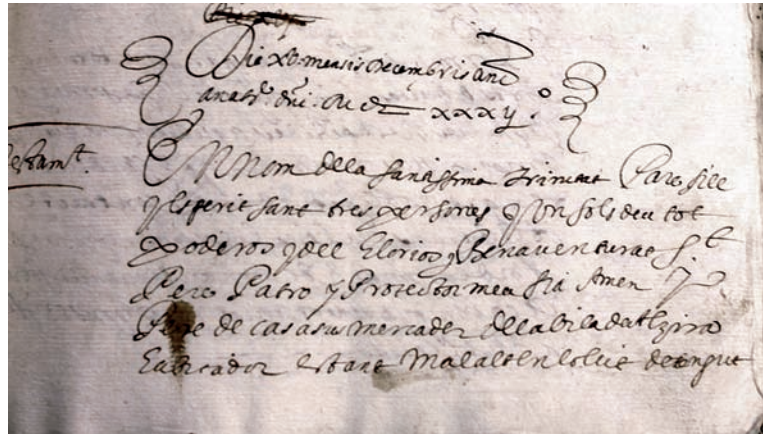 Die xv mensis decembris anno
a nat. dni. M DC xxxij
testamt.
En nom de la santissima trinitat Pare fill
y lsperit sant tres persones y un sols deu tot
poderos y del glorios y Benaventurat St.
Pere Patro y Protector meu sia Amen yo
Pere de casasus mercader de la vila de Alzira
habitador estant malalt en lo llit detengut